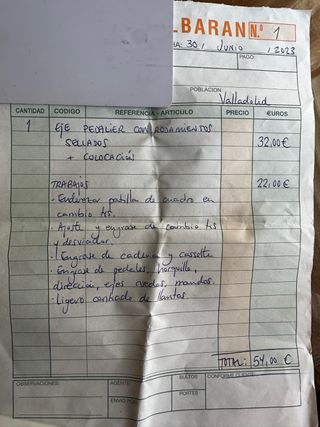 ALBARAN N.º 1
FECHA: 30 / JUNIO / 2023
PAGO:
POBLACIÓN
Valladolid
CANTIDAD CODIGO REFERENCIA - ARTICULO PRECIO €UROS
1 EJE PEDALIER CON RODAMIENTOS
SELLADOS 32,00€
+ COLOCACIÓN
TRABAJOS 22,00€
· Enderezar patilla de cuadro en
cambio trs.
· Ajuste y engrase de cambio trs
y desviador.
· Engrase de cadena y cassette
· Engrase de pedales, horquilla,
dirección, ejes ruedas, mandos.
· Ligero centrado de llantas.
TOTAL: 54,00 €
OBSERVACIONES: AGENTE: BULTOS CONFORME CLIENTE
ENVIO POR PORTES